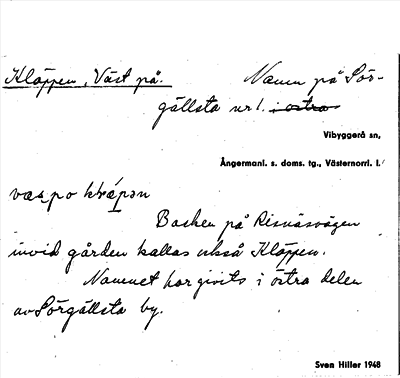 Kläppen, Väst på. Namn på Sör-
gållsta nr 1. i östra
Vibyggerå sn,
Ångermanl. s. doms. tg., Västernorrl. l.
Backen på Risnäsvägen
invid gården kallas också Kläppen.
Namnet har givits i östra delen
av Sörgållsta by.
Sven Hiller 1948